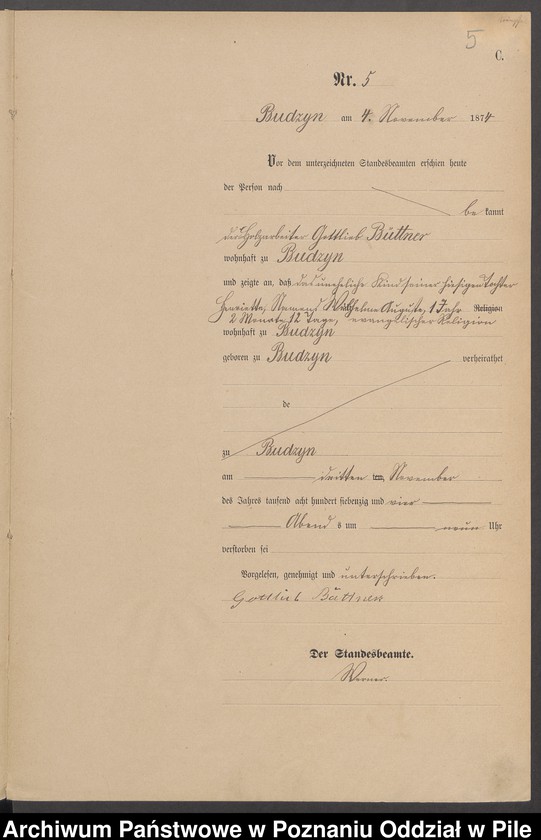 5
C.
Nr. 5
Budzyn am 4. November 1874
Vor dem unterzeichneten Standesbeamten erschien heute
der Person nach
be kannt
der Holzarbeiter Gottlieb Büttner
wohnhaft zu Budzyn
und zeigte an, daß das uneheliche Kind seiner hiesigen Tochter
Henriette, Namens Wilhelmine Auguste, 1 Jahr Religion
2 Monate 12 Tage, evangelischer Religion
wohnhaft zu Budzyn
geboren zu Budzyn verheirathet
de
zu Budzyn
am dritten ten November
des Jahres tausend acht hundert siebenzig und vier
Abend s um neun Uhr
verstorben sei
Vorgelesen, genehmigt und unterschrieben.
Gottlieb Büttner
Der Standesbeamte.
Werner.
Archiwum Państwowe w Poznaniu Oddział w Pile